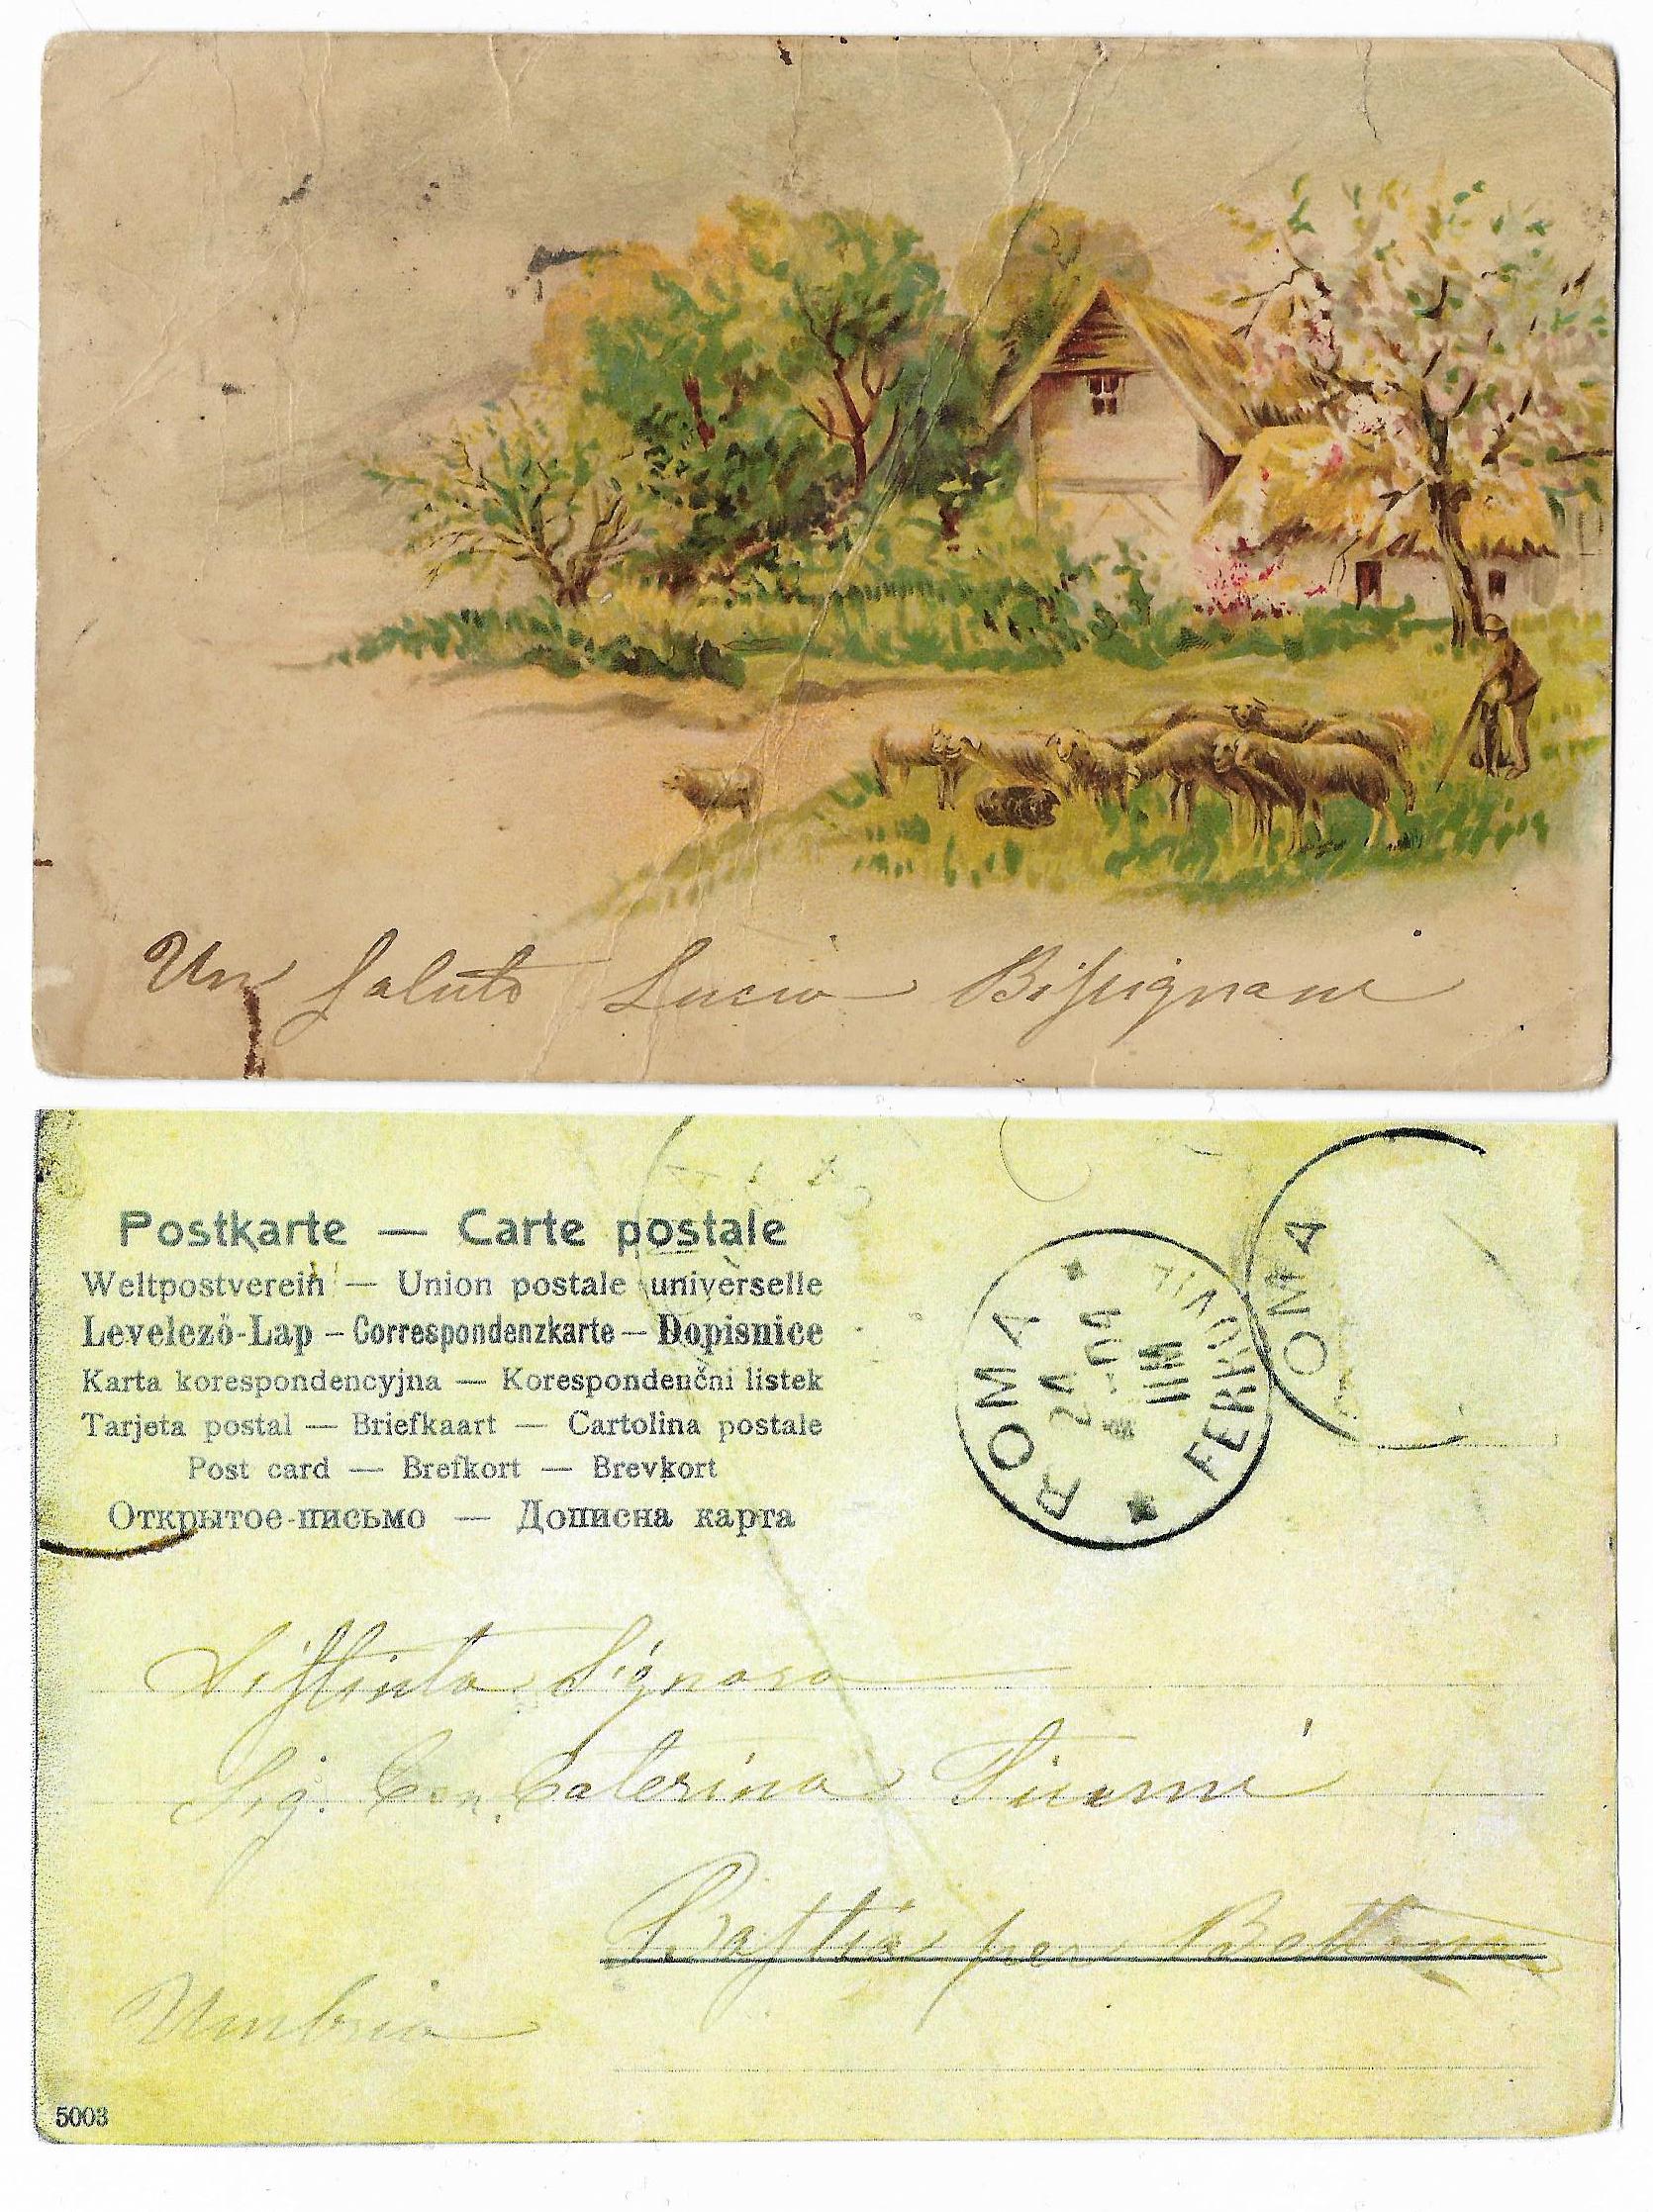 Un saluto Lucia Bispignani
Postkarte — Carte postale
Weltpostverein — Union postale universelle
Levelező-Lap – Correspondenzkarte – Dopisnice
Karta korespondencyjna — Korespondenčni listek
Tarjeta postal — Briefkaart — Cartolina postale
Post card — Brefkort — Brevkort
Открытое-письмо — Дописна карта
ROMA
FERROVIA
OMA
Distinta Signora
Sig. Caterina
Bastia per Bettona
Umbria
5003